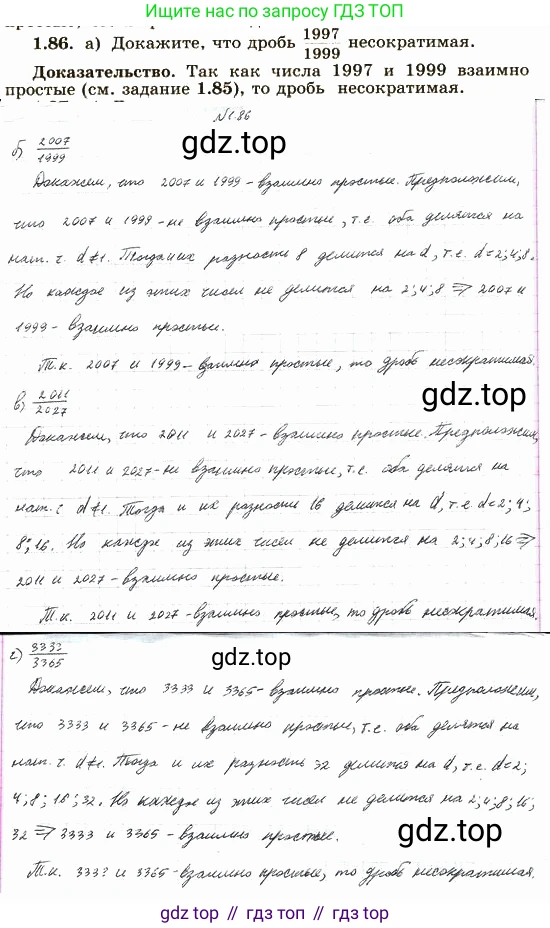 Приложение доступно в Google Play
Решение по запросу ГДЗ ТОП
1.86. а) Докажите, что дробь 1997/1999 несократимая.
Доказательство. Так как числа 1997 и 1999 взаимно
простые (см. задание 1.85), то дробь несократимая.
№1.86
gdz.top
б) 2007/1999
Докажем, что 2007 и 1999 - взаимно простые. Предположим,
что 2007 и 1999 - не взаимно простые, т.е. оба делятся на
нат. ч. d≠1. Тогда и их разность 8 делится на d, т.е. d=2;4;8.
Но каждое из этих чисел не делится на 2;4;8 ⇒ 2007 и
1999 - взаимно простые.
Т.к. 2007 и 1999 - взаимно простые, то дробь несократимая.
gdz.top
в) 2011/2027
Докажем, что 2011 и 2027 - взаимно простые. Предположим,
что 2011 и 2027 - не взаимно простые, т.е. оба делятся на
нат. ч. d≠1. Тогда и их разность 16 делится на d, т.е. d=2;4;
8;16. Но каждое из этих чисел не делится на 2;4;8;16 ⇒
2011 и 2027 - взаимно простые.
Т.к. 2011 и 2027 - взаимно простые, то дробь несократимая.
г) 3333/3365
gdz.top
Докажем, что 3333 и 3365 - взаимно простые. Предположим,
что 3333 и 3365 - не взаимно простые, т.е. оба делятся на
нат. ч. d≠1. Тогда и их разность 32 делится на d, т.е. d=2;
4;8;16;32. Но каждое из этих чисел не делится на 2;4;8;16;
32 ⇒ 3333 и 3365 - взаимно простые.
gdz.top
Т.к. 3333 и 3365 - взаимно простые, то дробь несократимая.
gdz.top // гдз.топ // gdz top